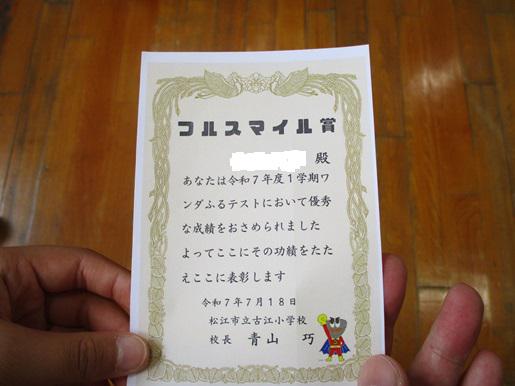 フルスマイル賞
殿
あなたは令和7年度1学期ワ
ンダふるテストにおいて優秀
な成績をおさめられました
よってここにその功績をたた
えここに表彰します
令和7年7月18日
松江市立古江小学校
校長 青山 巧